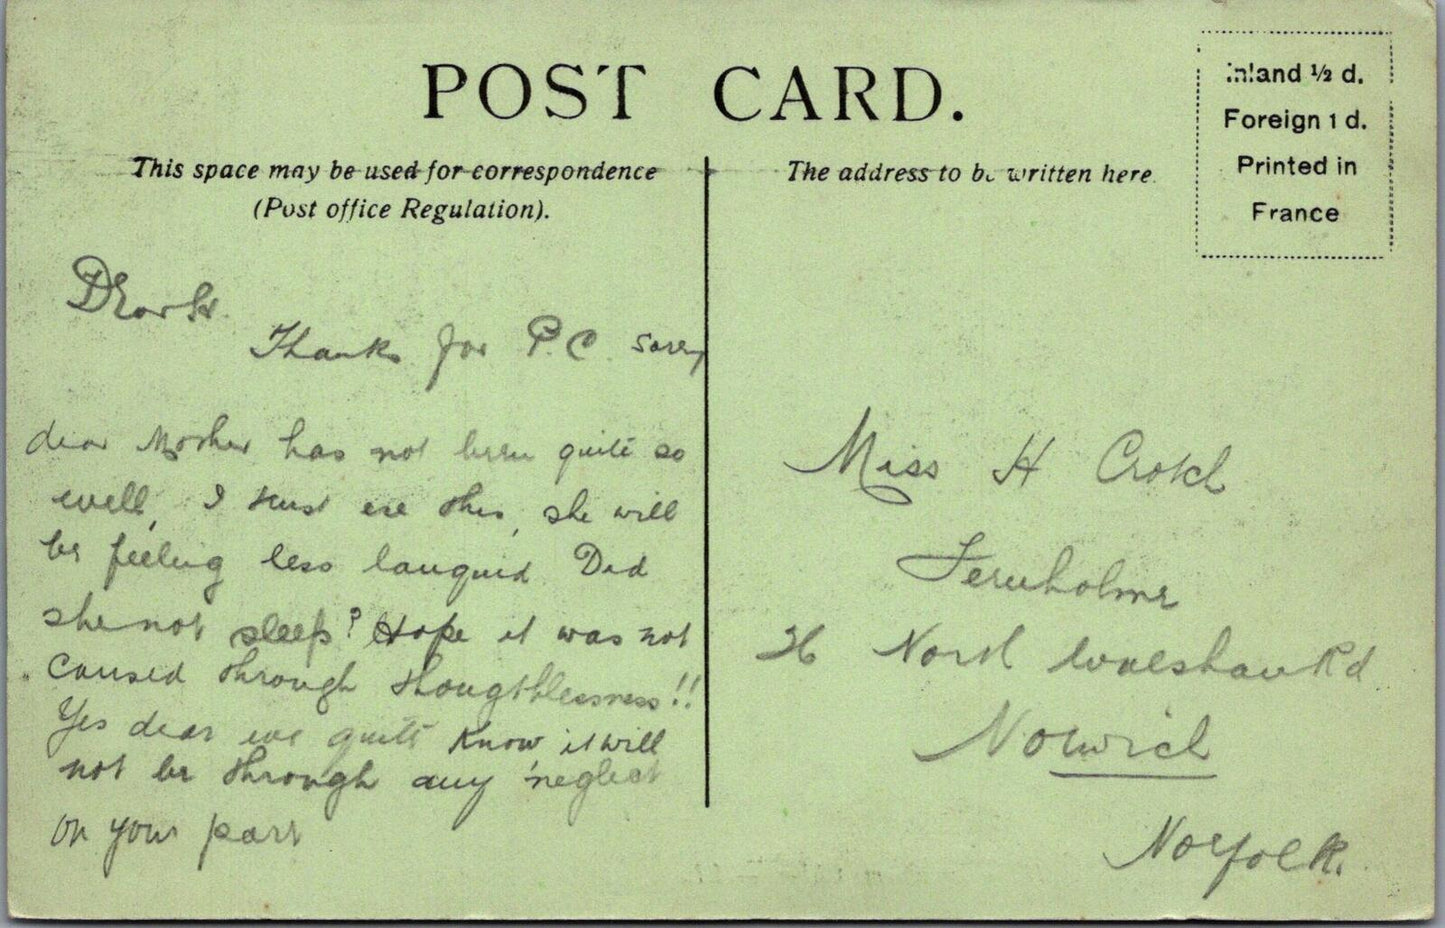 POST CARD.
This space may be used for correspondence
(Post office Regulation).
The address to be written here
Inland ½ d.
Foreign 1 d.
Printed in
France
Thanks for P.C. sorry
dear Mother has not been quite so
well, I trust ere this, she will
be feeling less languid Did
she not sleep? Hope it was not
caused through thougthlessness!!
Yes dear we quite know it will
not be through any neglect
on your part
Miss H
Fernholme
26 North Walsham Rd
Norwich
Norfolk.